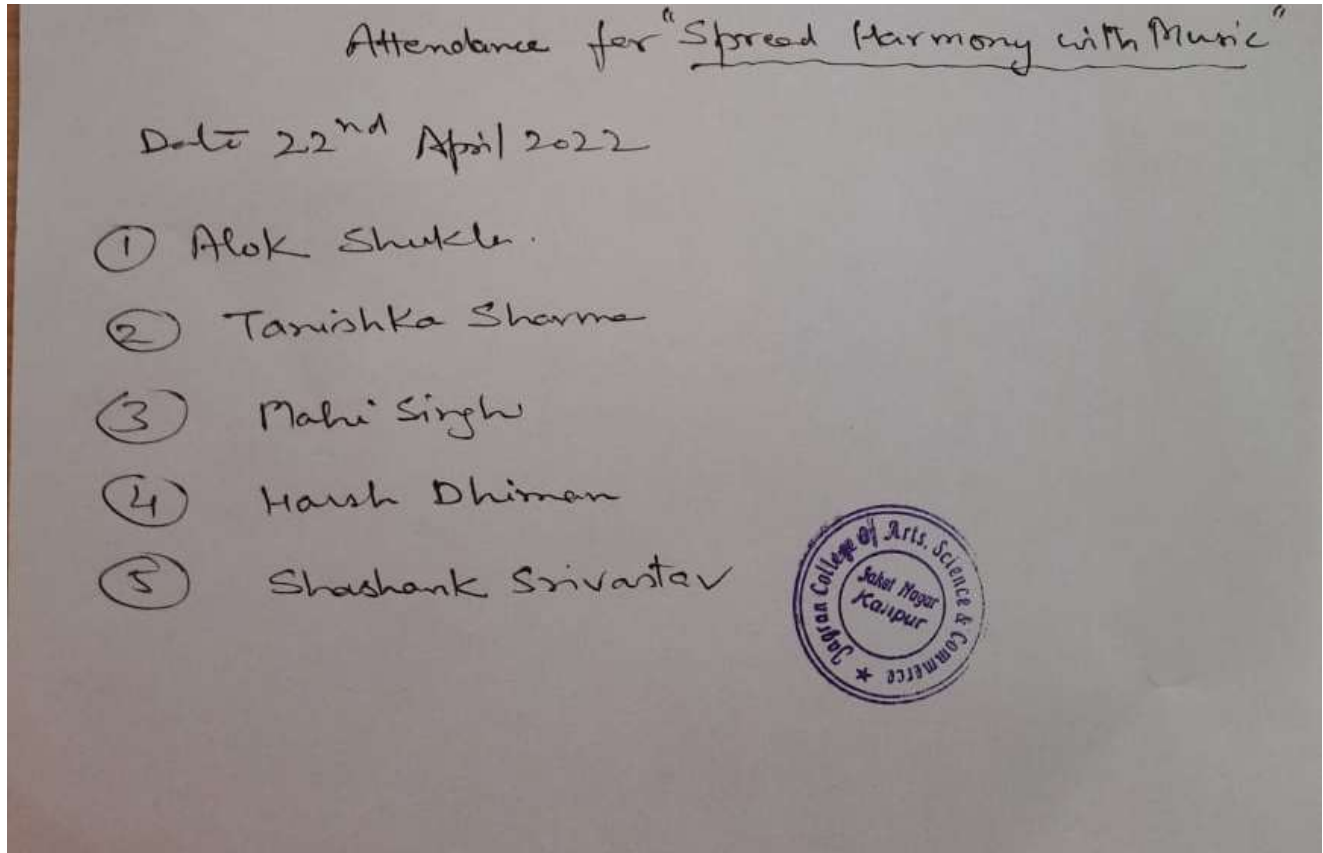 Attendance for "Spread Harmony with Music"
Date 22nd April 2022
1 Alok Shukla.
2 Tanishka Sharma
3 Mahi Singh
4 Harsh Dhiman
5 Shashank Srivastav
Jagran College Of Arts, Science & Commerce
Saket Nagar
Kanpur